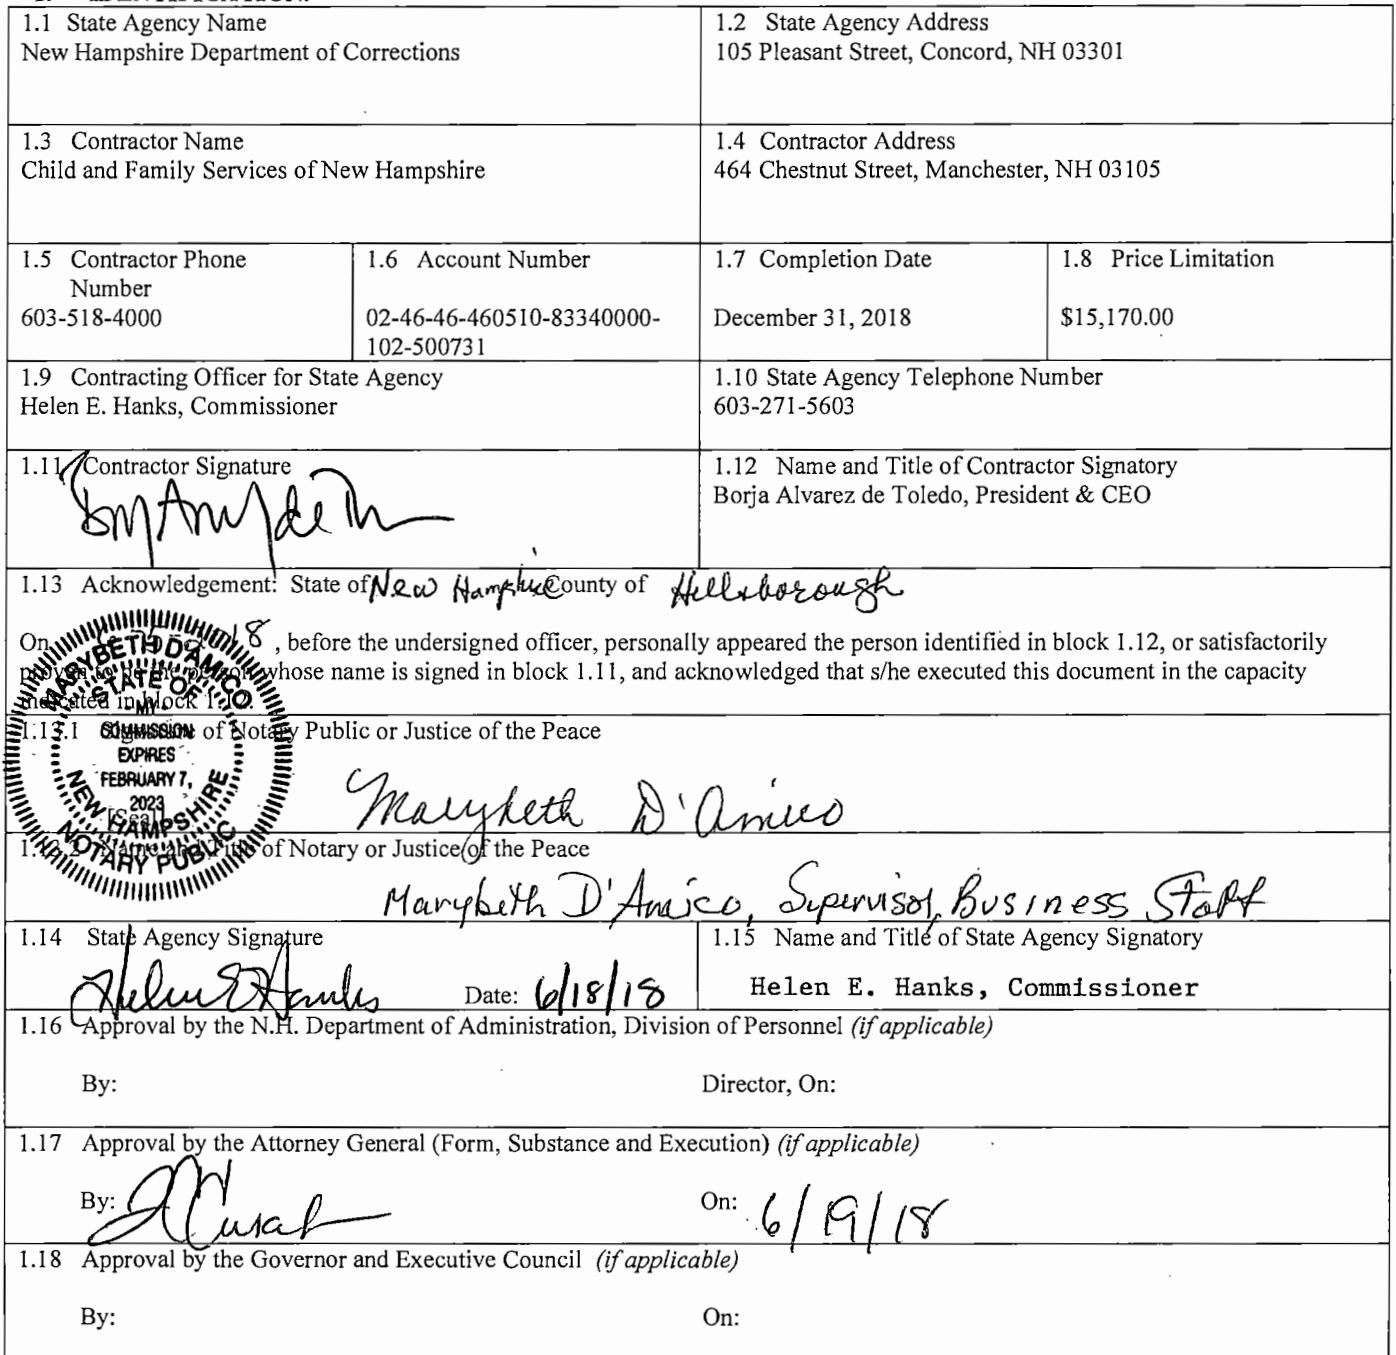 1.1 State Agency Name
New Hampshire Department of Corrections
1.2 State Agency Address
105 Pleasant Street, Concord, NH 03301
1.3 Contractor Name
Child and Family Services of New Hampshire
1.4 Contractor Address
464 Chestnut Street, Manchester, NH 03105
1.5 Contractor Phone
Number
603-518-4000
1.6 Account Number
02-46-46-460510-83340000-
102-500731
1.7 Completion Date
December 31, 2018
1.8 Price Limitation
$15,170.00
1.9 Contracting Officer for State Agency
Helen E. Hanks, Commissioner
1.10 State Agency Telephone Number
603-271-5603
1.11 Contractor Signature
1.12 Name and Title of Contractor Signatory
Borja Alvarez de Toledo, President & CEO
1.13 Acknowledgement: State of New Hampshire County of Hillsborough
On 18, before the undersigned officer, personally appeared the person identified in block 1.12, or satisfactorily
proven to be the person whose name is signed in block 1.11, and acknowledged that s/he executed this document in the capacity
indicated in block 1.12.
1.13.1 Signature of Notary Public or Justice of the Peace
[Seal]
Marybeth D'Amico
MARYBETH DAMICO
STATE OF
MY
COMMISSION
EXPIRES
FEBRUARY 7,
2023
NEW HAMPSHIRE
NOTARY PUBLIC
1.13.2 Name and Title of Notary or Justice of the Peace
Marybeth D'Amico, Supervisor, Business Staff
1.14 State Agency Signature
Helen E Hanks Date: 6/18/18
1.15 Name and Title of State Agency Signatory
Helen E. Hanks, Commissioner
1.16 Approval by the N.H. Department of Administration, Division of Personnel (if applicable)
By: Director, On:
1.17 Approval by the Attorney General (Form, Substance and Execution) (if applicable)
By: On: 6/19/18
1.18 Approval by the Governor and Executive Council (if applicable)
By: On: